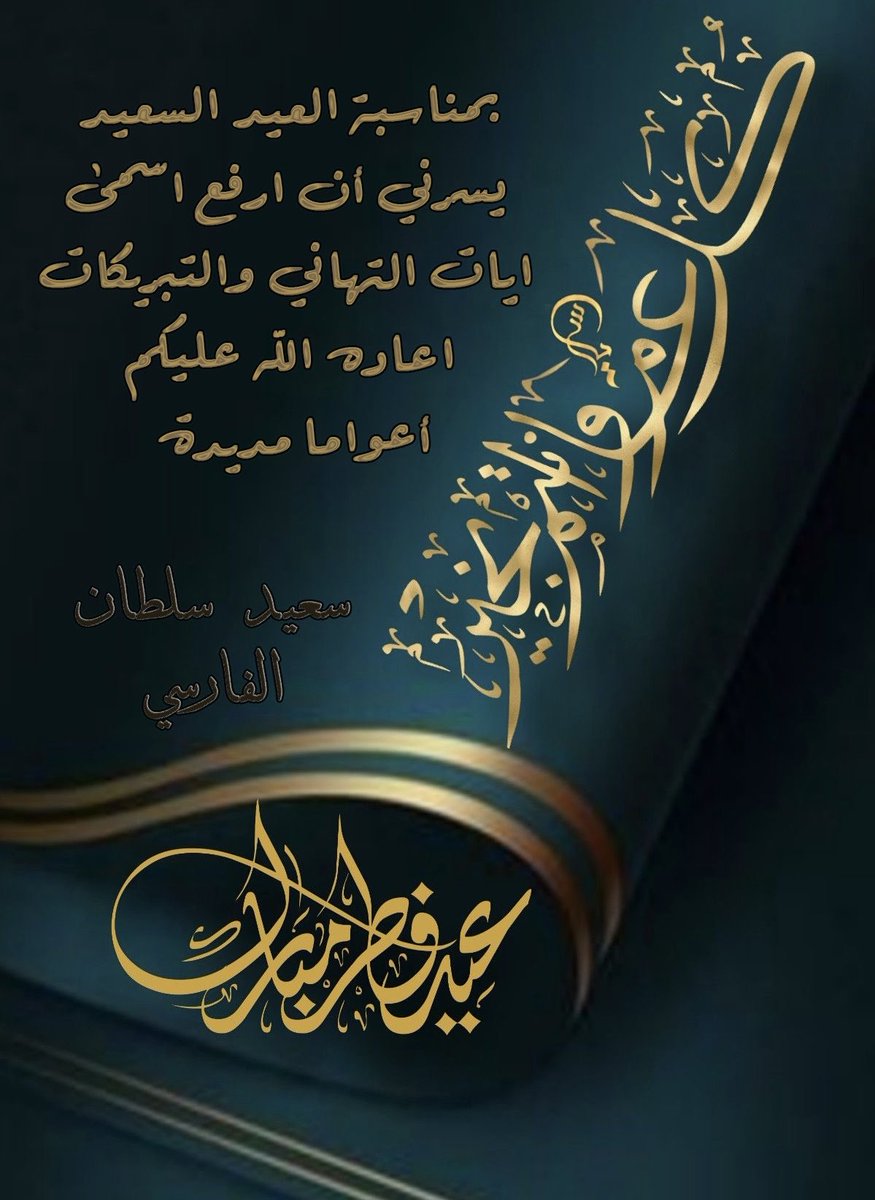 بمناسبة العيد السعيد
يسرني أن ارفع اسمى
ايات التهاني والتبريكات
اعاده الله عليكم
أعواما مديدة
كل عام وانتم بخير
سعيد سلطان
الفارسي
عيد فطر مبارك